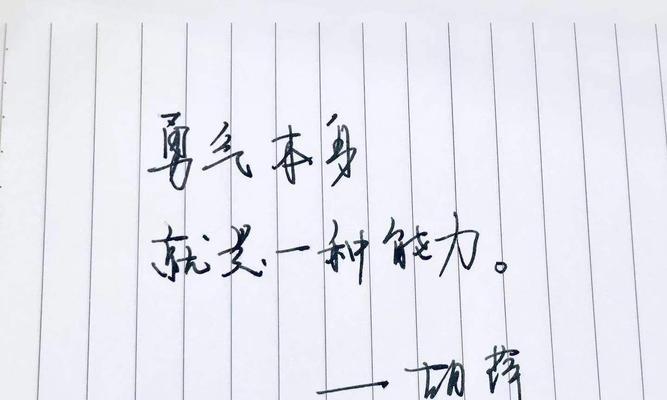 勇气本身
就是一种能力。
——胡